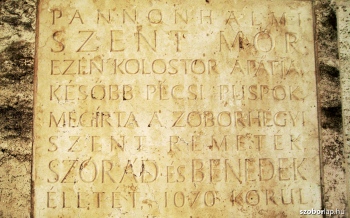 PANNONHALMI
SZENT MÓR
EZEN KOLOSTOR APÁTJA,
KÉSŐBB PÉCSI PÜSPÖK,
MEGÍRTA A ZOBORHEGYI
SZENT REMETÉK
SZÓRÁD ÉS BENEDEK
ÉLETÉT, 1070 KÖRÜL
szoborlap.hu